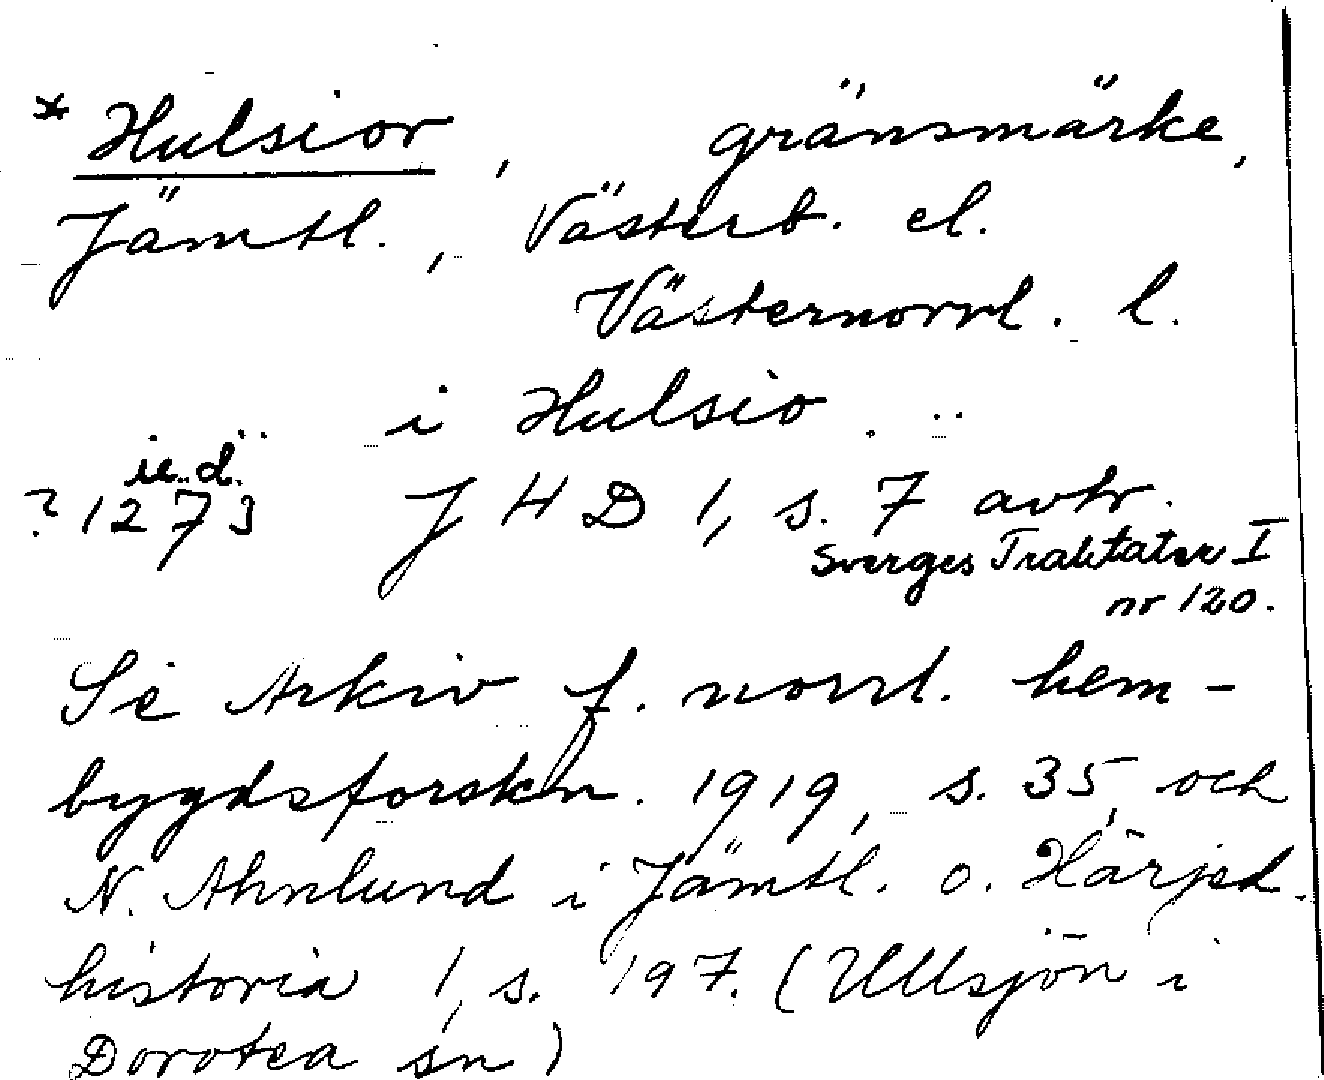 * Hulsior, gränsmärke,
Jämtl., Västerb. el.
Västernorrl. l.
i Hulsio.
? 1273 JHD 1, s. 7 avtr.
Sverges Traktater I
nr 120.
Se Arkiv f. norrl. hem-
bygdsforskn. 1919, s. 35, och
N. Ahnlund i Jämtl. o. Härjed.
historia 1, s. 197. (Ullsjön i
Dorotea sn)